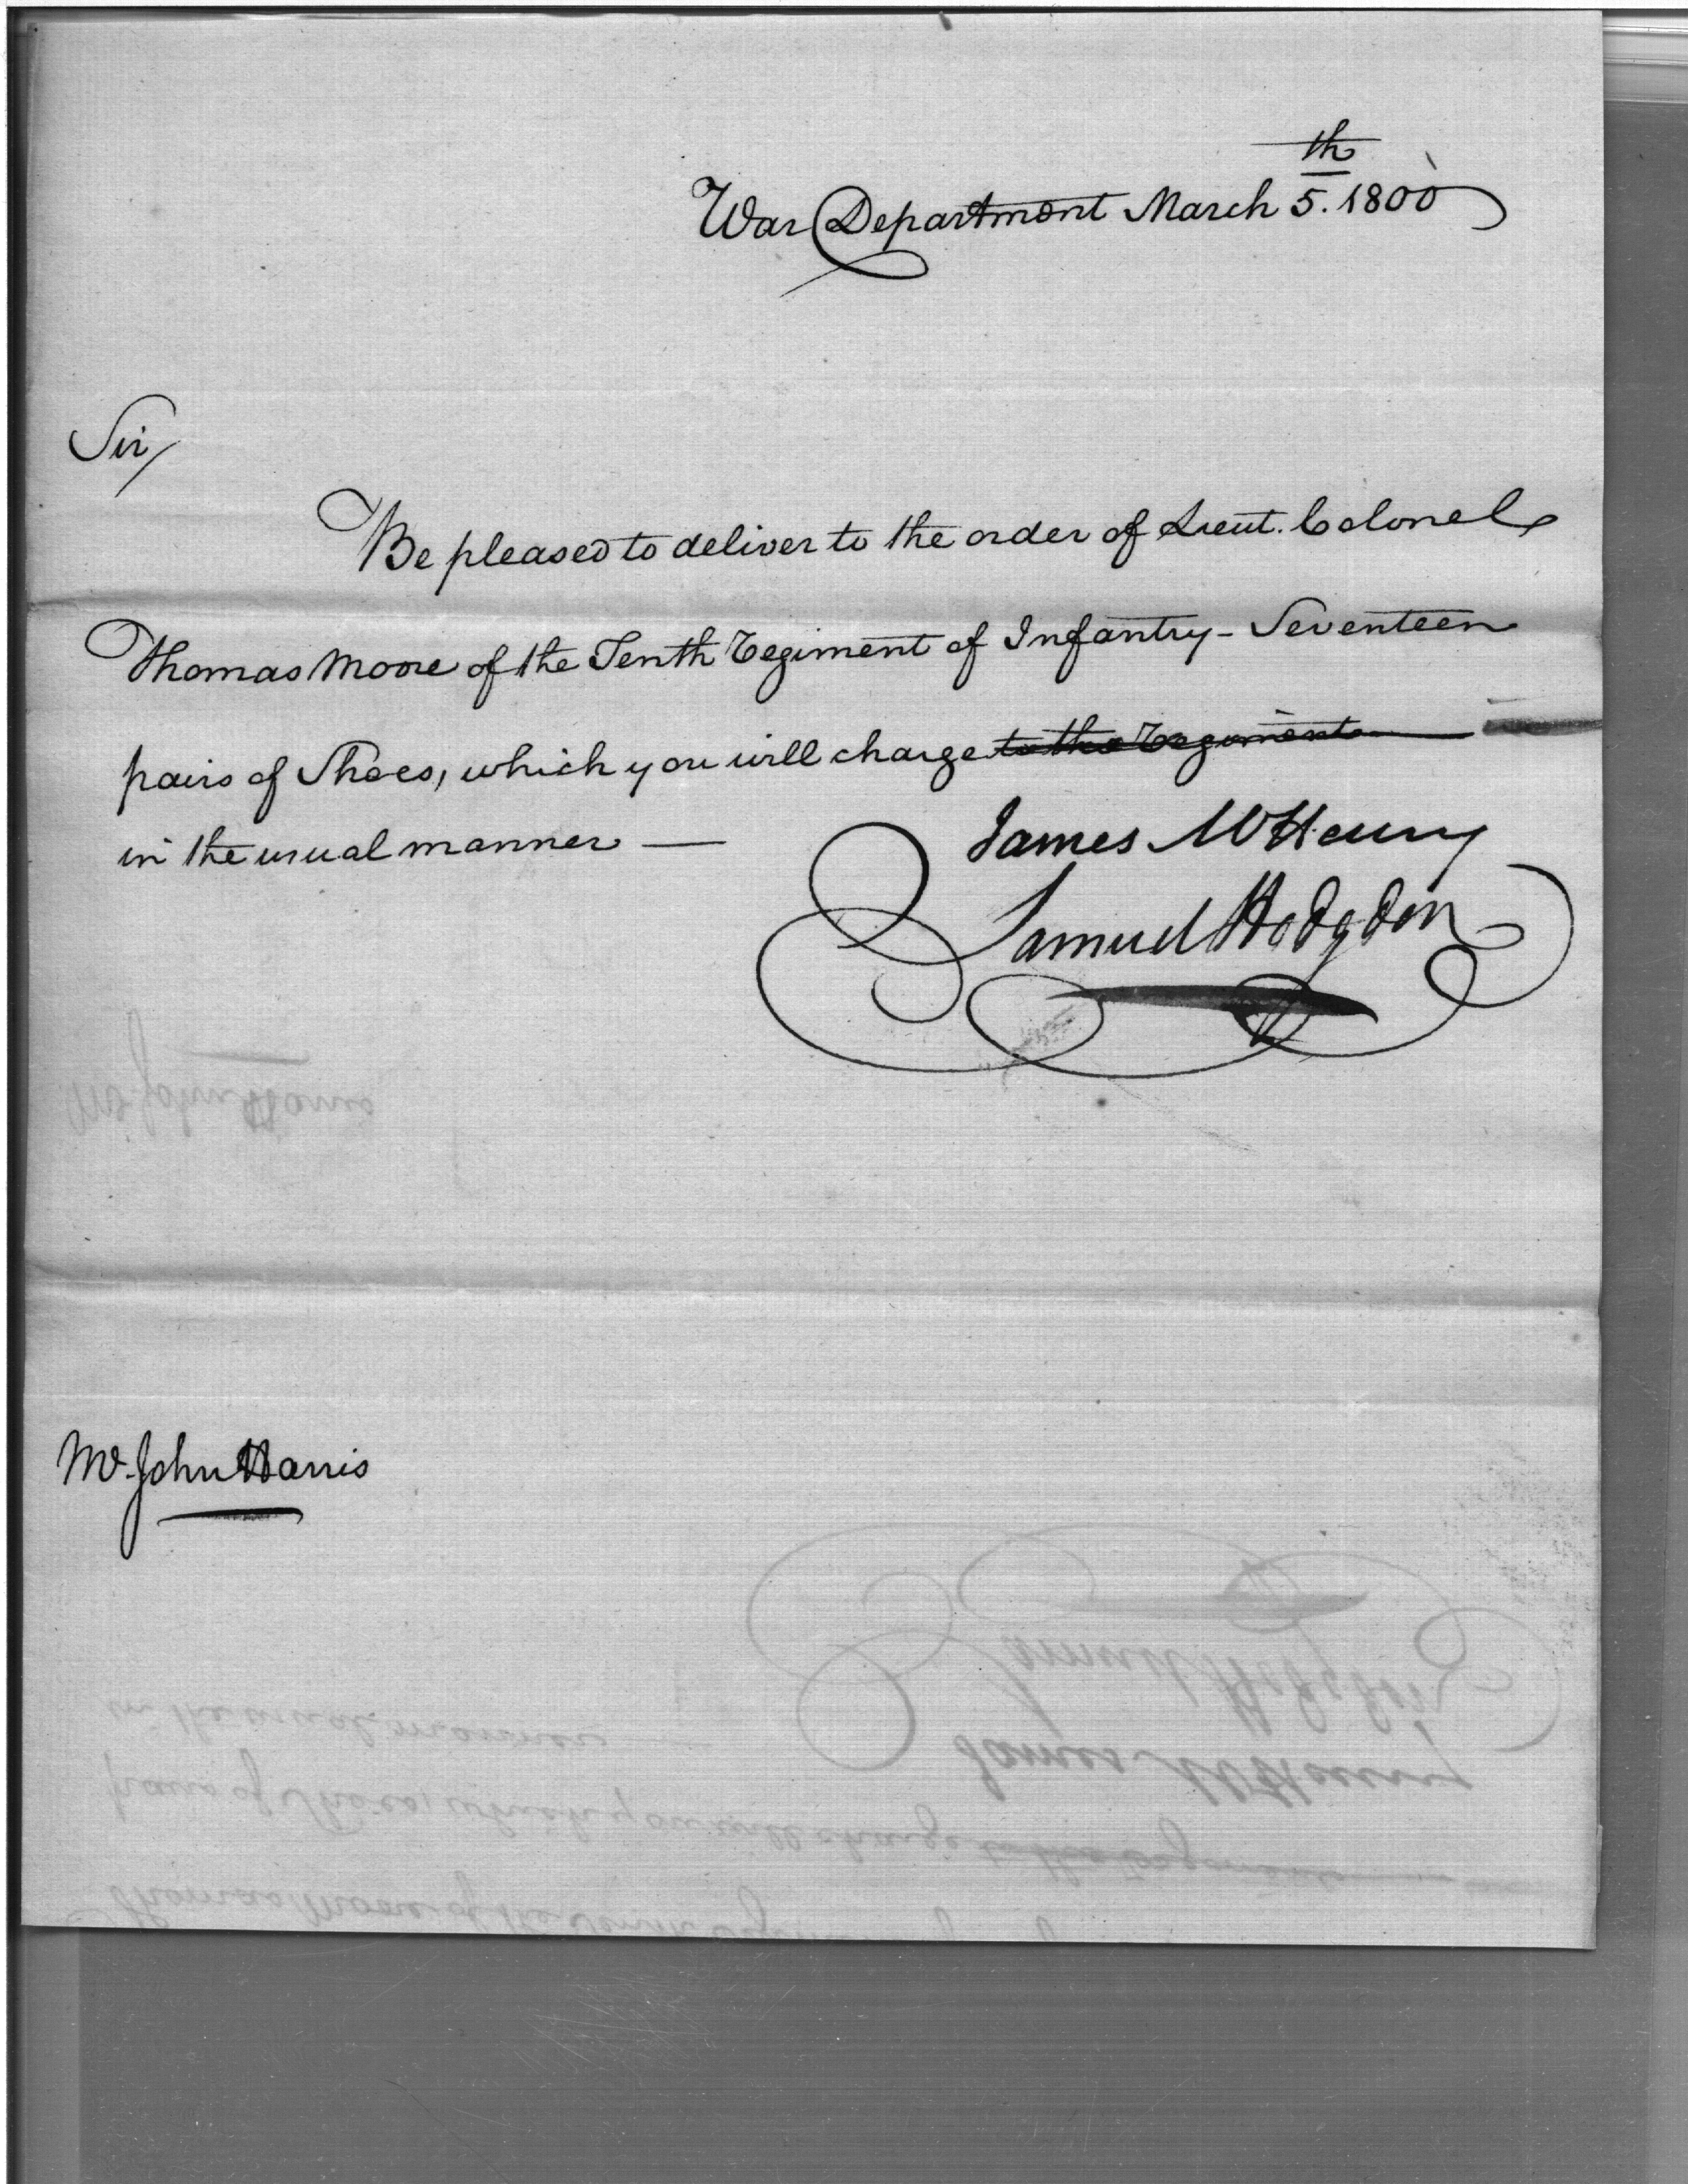 War Department March 5th. 1800
Sir,
Be pleased to deliver to the order of Lieut. Colonel
Thomas Moore of the Tenth Regiment of Infantry - Seventeen
pairs of Shoes, which you will charge to the Regiment
in the usual manner —
James McHenry
Samuel Hodgdon
Mr. John Harris